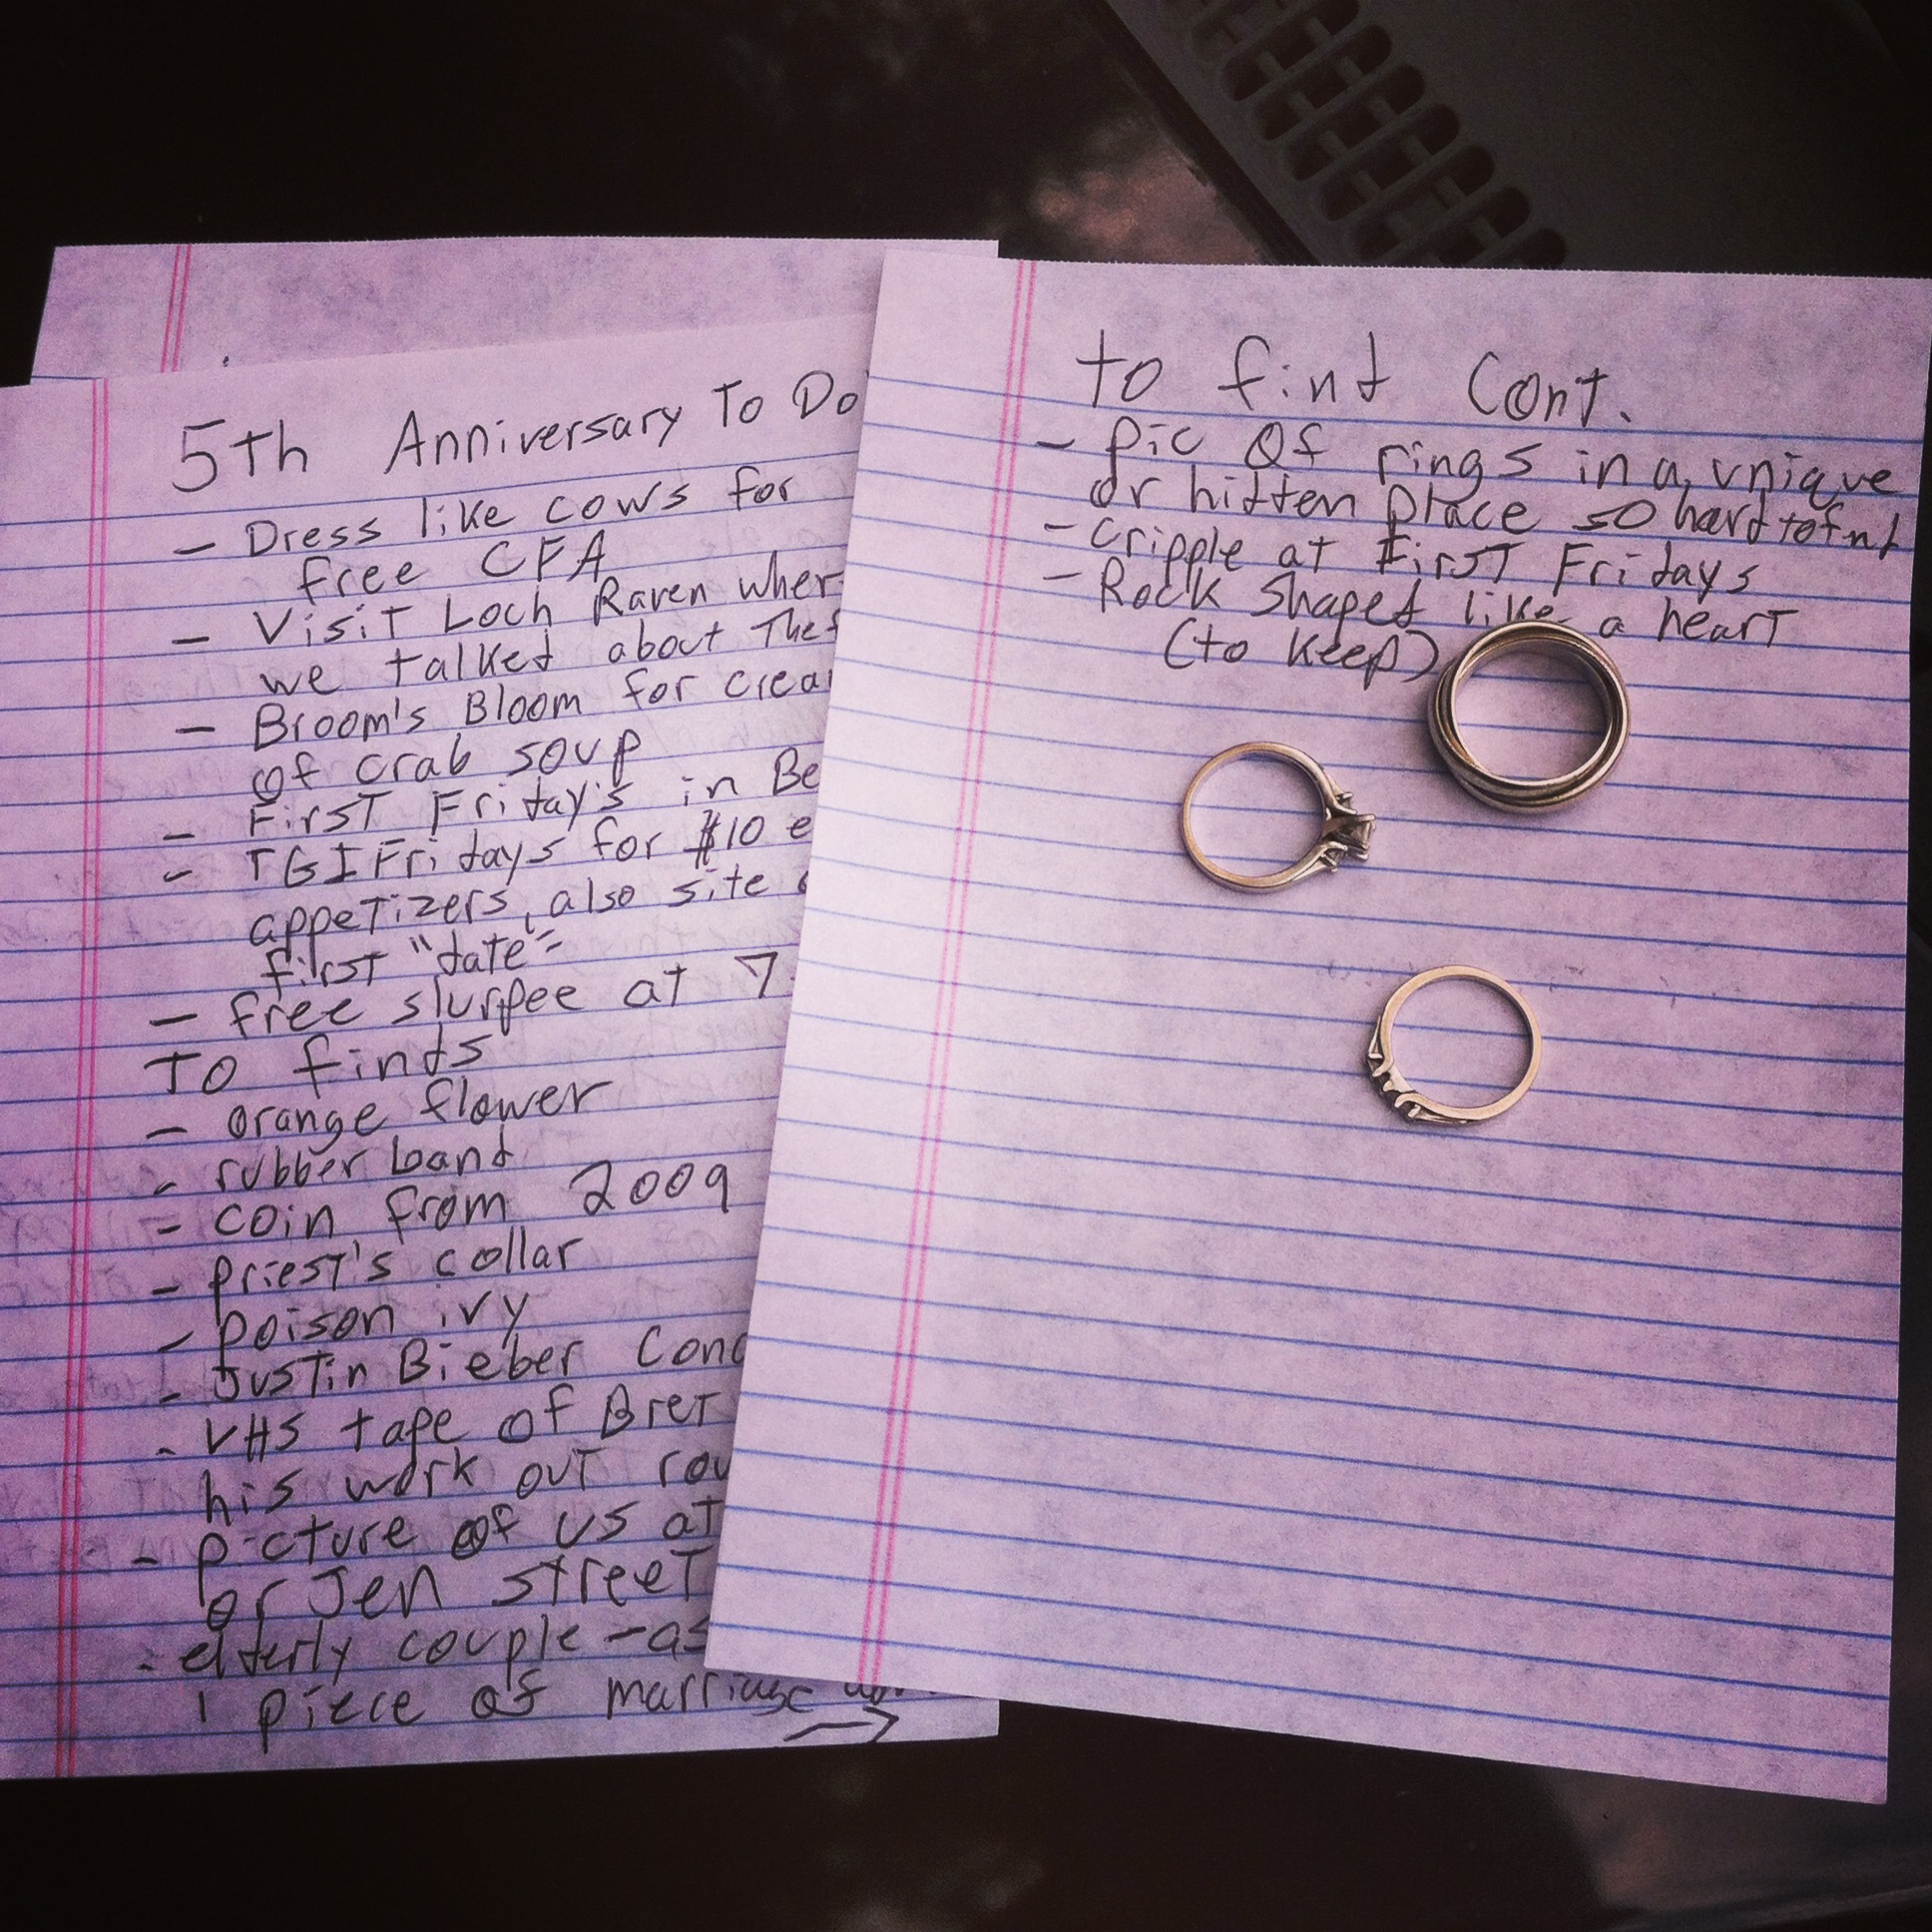 5th Anniversary To Do
- Dress like cows for
free CFA
- Visit Loch Raven wher
we talked about The
- Broom's Bloom for crea
of crab soup
- First Friday's in Be
- TGIFridays for $10 e
appetizers, also site
first "date"
- free slurpee at 7
To finds
- orange flower
- rubber band
- coin from 2009
- priest's collar
- poison ivy
- Justin Bieber Conc
- VHS tape of Bret
his work out rou
- picture of us at
or Jen street
- elderly couple - as
1 piece of marriage
to find Cont.
- pic of rings in a unique
or hidden place so hard to find
- cripple at First Fridays
- Rock shaped like a heart
(to keep)